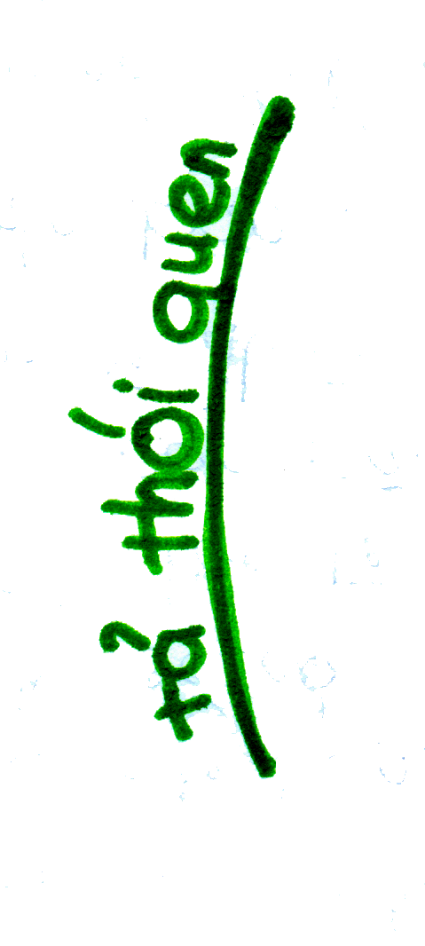 tả thói quen